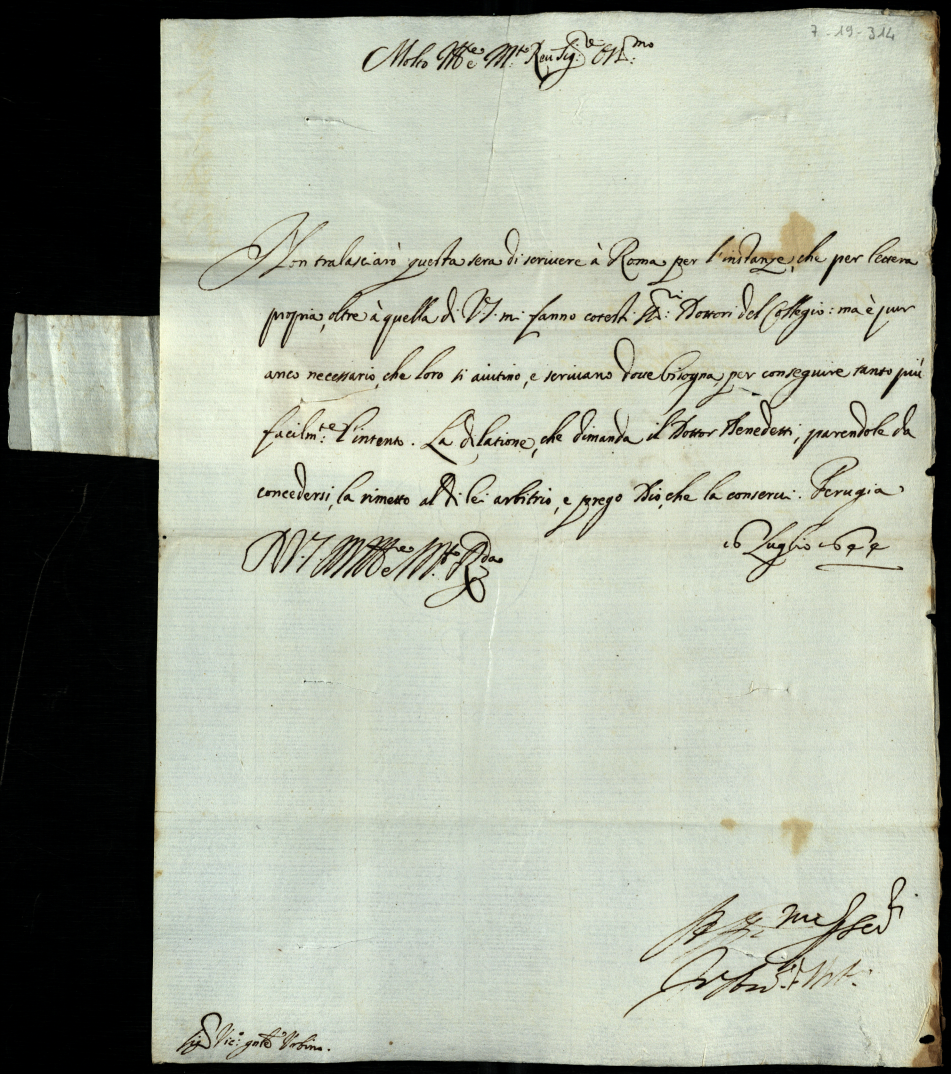 7-19-314
Molto Ill.re e M.to Rev. Sig.re Oss.mo
Non tralasciarò questa sera di scrivere à Roma per l'instanze, che per lettera
propria, oltre à quella di V.S. mi fanno cotesti SS.ri Dottori del Collegio: ma è pur
anco necessario, che loro si aiutino, e scrivano dove bisogna, per conseguire tanto più
facilm.te l'intento. La dilatione, che dimanda il Dottor Benedetti, parendole da
concedersi, la rimetto al di lei arbitrio, e prego Dio, che la conservi. Perugia
16 Luglio
D V.S. M Ill.re e M.to R.da
Sig.r Vic.o gnle Urbino.